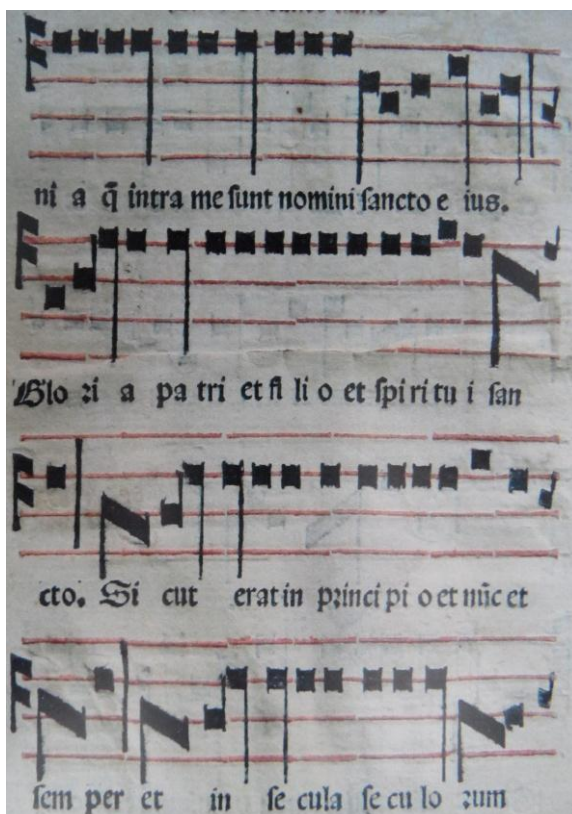 ni a q̄ intra me sunt nomini sancto e ius.
Glo ri a pa tri et fi li o et spi ri tu i san
cto. Si cut erat in princi pi o et nūc et
sem per et in se cula se cu lo rum